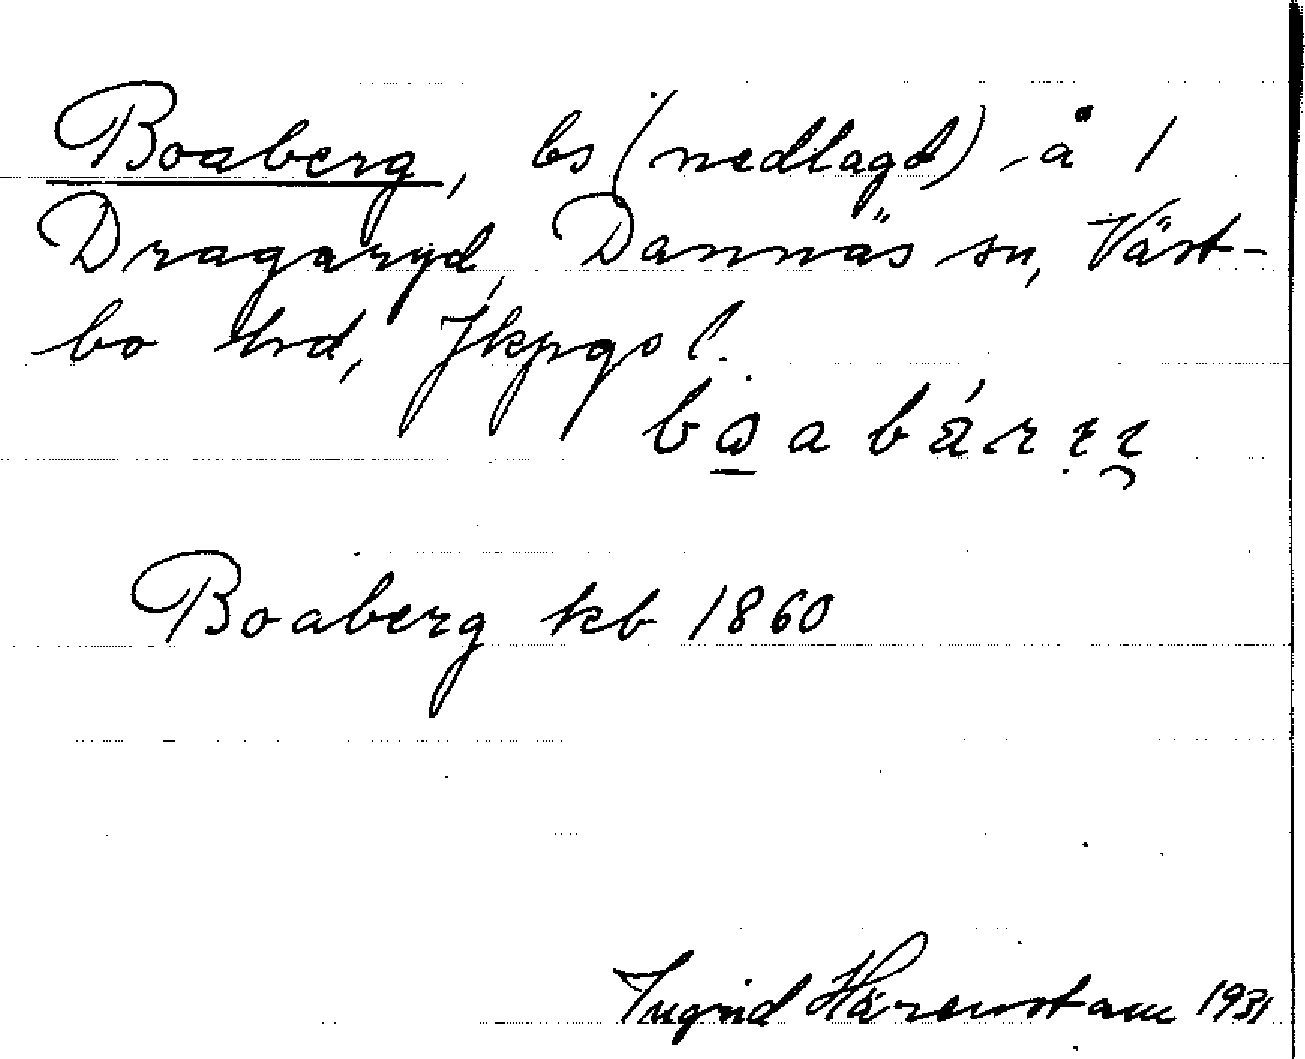 Boaberg, bs (nedlagd) å 1
Dragaryd, Dannäs sn, Väst-
bo hd, Jkpgs l.
Boaberg kb 1860
Ingrid Härenstam 1931